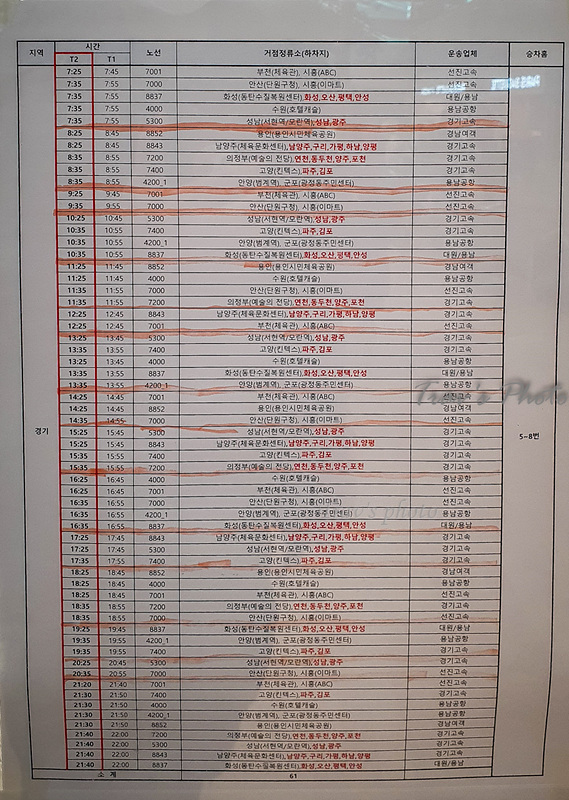 지역 시간 노선 거점정류소(하차지) 운송업체 승차홈
T2 T1
7:25 7:45 7001 부천(체육관), 시흥(ABC) 선진고속
7:35 7:55 7000 안산(단원구청), 시흥(이마트) 선진고속
7:35 7:55 8837 화성(동탄수질복원센터),화성,오산,평택,안성 대원/용남
7:35 7:55 4000 수원(호텔캐슬) 용남공항
7:35 7:55 5300 성남(서현역/모란역),성남,광주 경기고속
8:25 8:45 8852 용인(용인시민체육공원) 경남여객
8:25 8:45 8843 남양주(체육문화센터),남양주,구리,가평,하남,양평 경기고속
8:35 8:55 7200 의정부(예술의 전당),연천,동두천,양주,포천 경기고속
8:35 8:55 7400 고양(킨텍스),파주,김포 경기고속
8:35 8:55 4200_1 안양(범계역), 군포(광정동주민센터) 용남공항
9:25 9:45 7001 부천(체육관), 시흥(ABC) 선진고속
9:35 9:55 7000 안산(단원구청), 시흥(이마트) 선진고속
10:25 10:45 5300 성남(서현역/모란역),성남,광주 경기고속
10:35 10:55 7400 고양(킨텍스),파주,김포 경기고속
10:35 10:55 4200_1 안양(범계역), 군포(광정동주민센터) 용남공항
10:35 10:55 8837 화성(동탄수질복원센터),화성,오산,평택,안성 대원/용남
11:25 11:45 8852 용인(용인시민체육공원) 경남여객
11:25 11:45 4000 수원(호텔캐슬) 용남공항
11:35 11:55 7000 안산(단원구청), 시흥(이마트) 선진고속
11:35 11:55 7200 의정부(예술의 전당),연천,동두천,양주,포천 경기고속
12:25 12:45 8843 남양주(체육문화센터),남양주,구리,가평,하남,양평 경기고속
12:25 12:45 7001 부천(체육관), 시흥(ABC) 선진고속
13:25 13:45 5300 성남(서현역/모란역),성남,광주 경기고속
13:35 13:55 7400 고양(킨텍스),파주,김포 경기고속
13:25 13:45 4000 수원(호텔캐슬) 용남공항
13:35 13:55 8837 화성(동탄수질복원센터),화성,오산,평택,안성 대원/용남
13:35 13:55 4200_1 안양(범계역), 군포(광정동주민센터) 용남공항
14:25 14:45 7001 부천(체육관), 시흥(ABC) 선진고속
14:25 14:45 8852 용인(용인시민체육공원) 경남여객
14:35 14:55 7000 안산(단원구청), 시흥(이마트) 선진고속
경기 15:25 15:45 5300 성남(서현역/모란역),성남,광주 경기고속 5~8번
15:25 15:45 8843 남양주(체육문화센터),남양주,구리,가평,하남,양평 경기고속
15:35 15:55 7400 고양(킨텍스),파주,김포 경기고속
15:35 15:55 7200 의정부(예술의 전당),연천,동두천,양주,포천 경기고속
16:25 16:45 4000 수원(호텔캐슬) 용남공항
16:25 16:45 7001 부천(체육관), 시흥(ABC) 선진고속
16:35 16:55 7000 안산(단원구청), 시흥(이마트) 선진고속
16:35 16:55 4200_1 안양(범계역), 군포(광정동주민센터) 용남공항
16:35 16:55 8837 화성(동탄수질복원센터),화성,오산,평택,안성 대원/용남
17:25 17:45 8843 남양주(체육문화센터),남양주,구리,가평,하남,양평 경기고속
17:25 17:45 5300 성남(서현역/모란역),성남,광주 경기고속
17:35 17:55 7400 고양(킨텍스),파주,김포 경기고속
18:25 18:45 8852 용인(용인시민체육공원) 경남여객
18:25 18:45 4000 수원(호텔캐슬) 용남공항
18:25 18:45 7001 부천(체육관), 시흥(ABC) 선진고속
18:35 18:55 7200 의정부(예술의 전당),연천,동두천,양주,포천 경기고속
18:35 18:55 7000 안산(단원구청), 시흥(이마트) 선진고속
19:25 19:45 8837 화성(동탄수질복원센터),화성,오산,평택,안성 대원/용남
19:35 19:55 4200_1 안양(범계역), 군포(광정동주민센터) 용남공항
19:35 19:55 7400 고양(킨텍스),파주,김포 경기고속
20:25 20:45 5300 성남(서현역/모란역),성남,광주 경기고속
20:35 20:55 7000 안산(단원구청), 시흥(이마트) 선진고속
21:20 21:40 7001 부천(체육관), 시흥(ABC) 선진고속
21:30 21:50 7400 고양(킨텍스),파주,김포 경기고속
21:30 21:50 4000 수원(호텔캐슬) 용남공항
21:30 21:50 4200_1 안양(범계역), 군포(광정동주민센터) 용남공항
21:30 21:50 8852 용인(용인시민체육공원) 경남여객
21:40 22:00 7200 의정부(예술의 전당),연천,동두천,양주,포천 경기고속
21:40 22:00 5300 성남(서현역/모란역),성남,광주 경기고속
21:40 22:00 8843 남양주(체육문화센터),남양주,구리,가평,하남,양평 경기고속
21:40 22:00 8837 화성(동탄수질복원센터),화성,오산,평택,안성 대원/용남
소 계 61